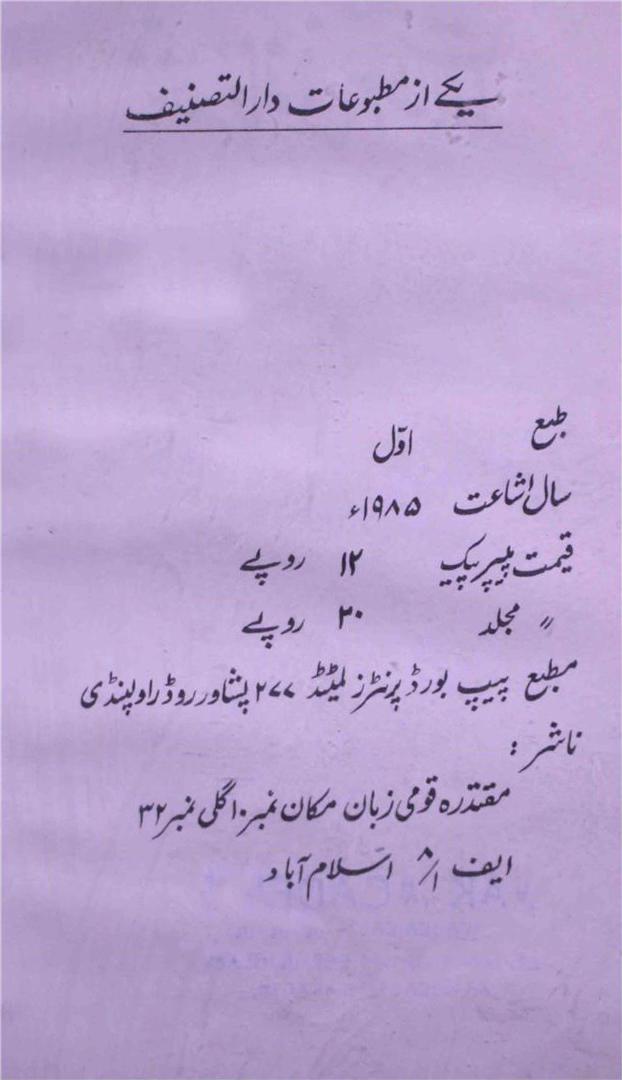 یکے از مطبوعات دار التصنیف
طبع اوّل
سال اشاعت ۱۹۸۵ء
قیمت پیپر بیک ۱۲ روپے
〃 مجلد ۲۰ روپے
مطبع پیپ بورڈ پرنٹرز لمیٹڈ ۲۷۷ پشاور روڈ راولپنڈی
ناشر :
مقتدرہ قومی زبان مکان نمبر ۱۰ گلی نمبر ۳۲
ایف ۸/۱ اسلام آباد